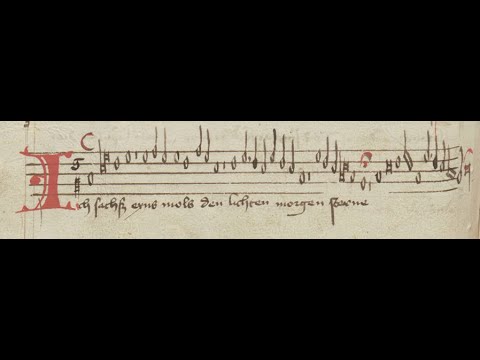 Ich sachß eyns mols den lichten morgen sterne